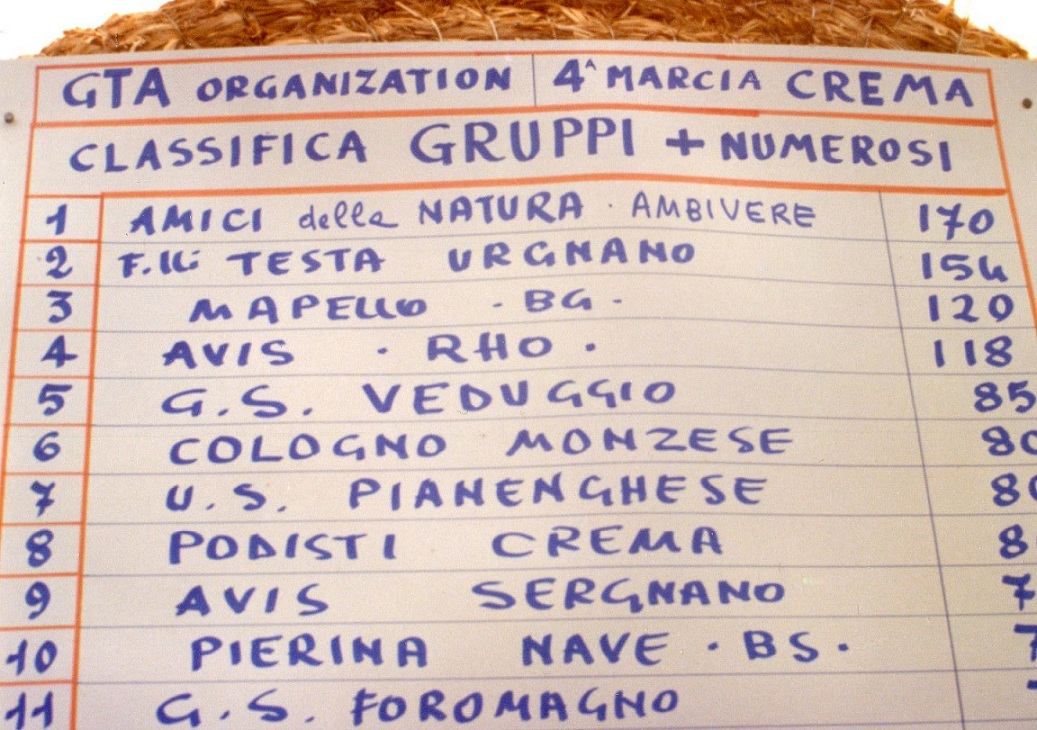 GTA ORGANIZATION 4^ MARCIA CREMA
CLASSIFICA GRUPPI + NUMEROSI
1 AMICI della NATURA · AMBIVERE 170
2 F.lli TESTA URGNANO 154
3 MAPELLO - BG - 120
4 AVIS · RHO · 118
5 G.S. VEDUGGIO 85
6 COLOGNO MONZESE 80
7 U.S. PIANENGHESE
8 PODISTI CREMA
9 AVIS SERGNANO
10 PIERINA NAVE · BS ·
11 G.S. FOROMAGNO